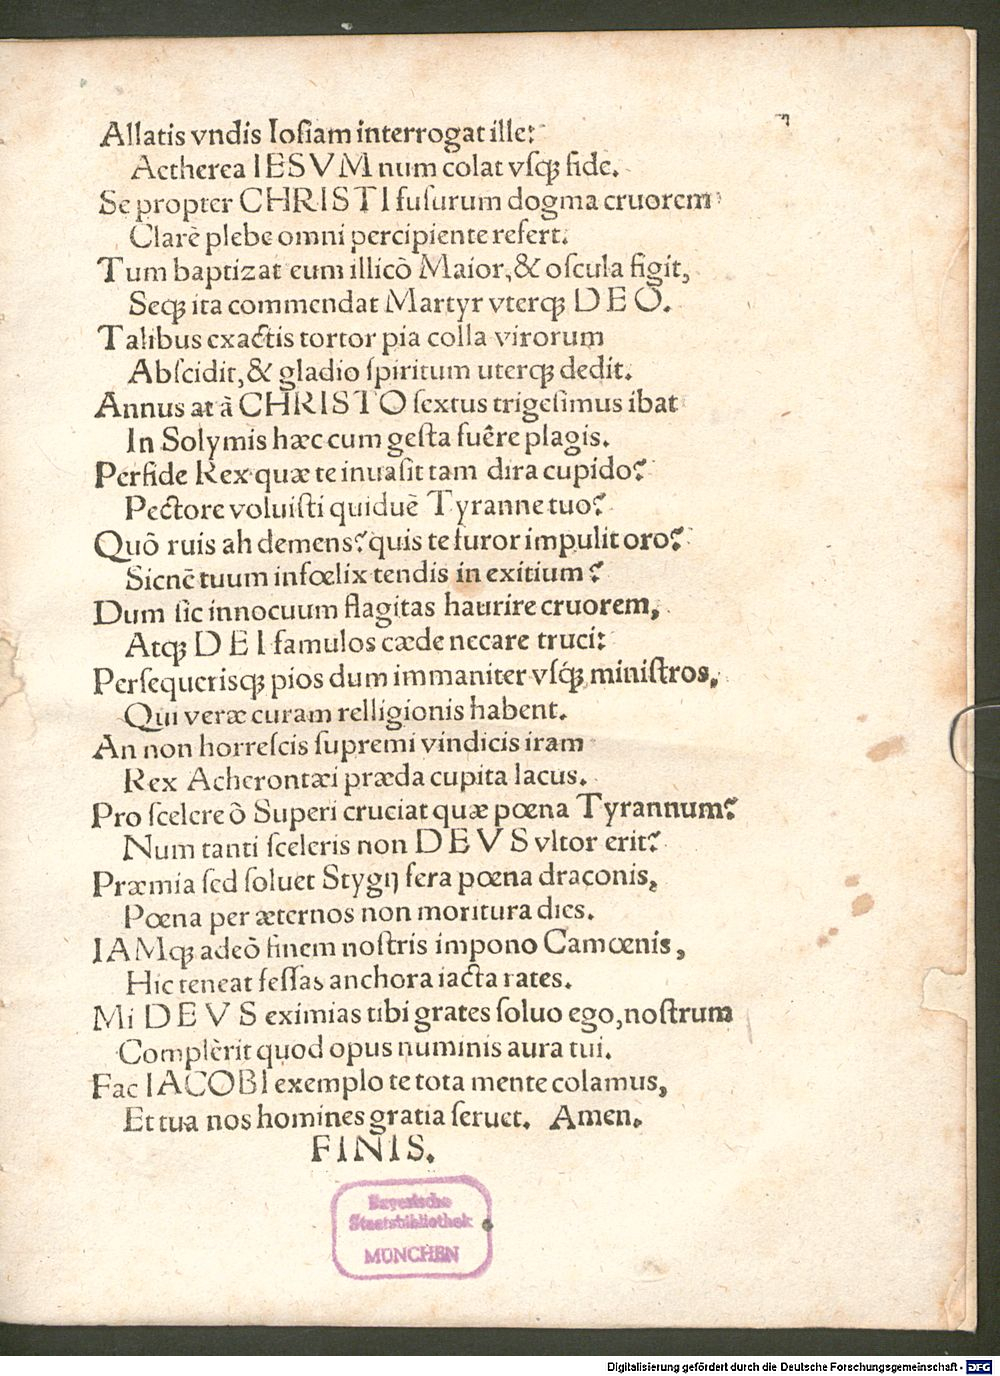 Allatis vndis Iosiam interrogat ille:
Aetherea IESVM num colat vsqꝫ fide.
Se propter CHRISTI fusurum dogma cruorem
Clarè plebe omni percipiente refert.
Tum baptizat eum illicò Maior, & oscula figit,
Seqꝫ ita commendat Martyr vterqꝫ DEO.
Talibus exactis tortor pia colla virorum
Abscidit, & gladio spiritum uterqꝫ dedit.
Annus at à CHRISTO sextus trigesimus ibat
In Solymis hæc cum gesta fuêre plagis.
Perfide Rex quæ te inuasit tam dira cupido?
Pectore voluisti quiduē Tyranne tuo?
Quò ruis ah demens? quis te furor impulit oro?
Sicnē tuum infœlix tendis in exitium?
Dum sic innocuum flagitas haurire cruorem,
Atqꝫ DEI famulos cæde necare truci:
Persequerisqꝫ pios dum immaniter vsqꝫ ministros,
Qui veræ curam relligionis habent.
An non horrescis supremi vindicis iram
Rex Acherontæi præda cupita lacus.
Pro scelere ô Superi cruciat quæ pœna Tyrannum?
Num tanti sceleris non DEVS vltor erit?
Præmia sed soluet Stygij fera pœna draconis,
Pœna per æternos non moritura dies.
IAMqꝫ adeò finem nostris impono Camœnis,
Hic teneat fessas anchora iacta rates.
Mi DEVS eximias tibi grates soluo ego, nostrum
Complèrit quod opus numinis aura tui.
Fac IACOBI exemplo te tota mente colamus,
Et tua nos homines gratia seruet. Amen.
FINIS.
Bayerische
Staatsbibliothek
MÜNCHEN
Digitalisierung gefördert durch die Deutsche Forschungsgemeinschaft - DFG